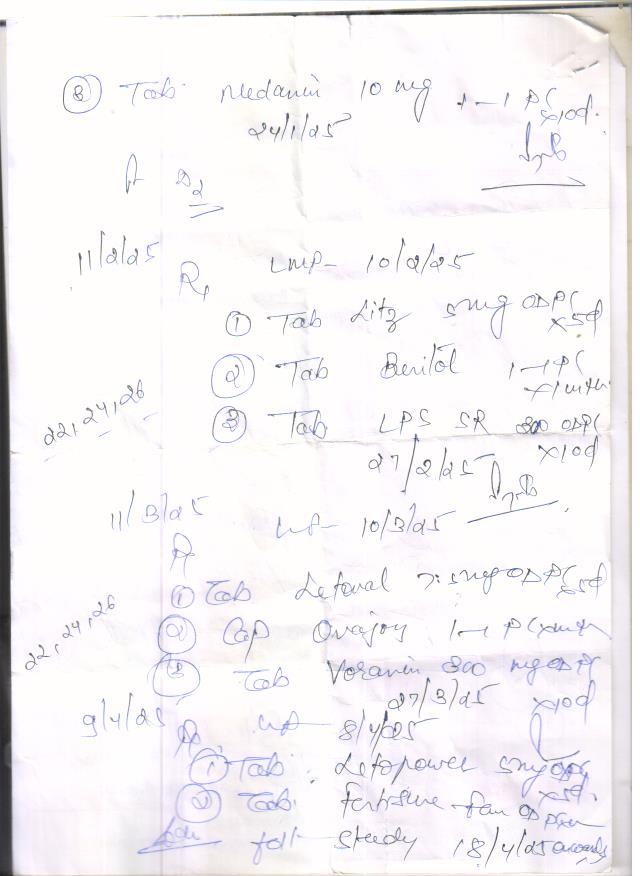 ③ Tab. Medanin 10 mg 1-1 PC x10d.
24/1/25
D2
11/2/25 LMP- 10/2/25
Rx
① Tab Litz 5mg OD PC x5d
② Tab Benitol 1-1 PC
③ Tab LPS SR 300 ODPC x10d
22, 24, 26
27/2/25
11/3/25 10/3/25
Rx
① Tab Letoval 7.5mg OD PC x5d
② Cap Ovajoy 1-1 PC
22, 24, 26
③ Tab Voranin 300 mg OD PC x10d
27/3/25
9/4/25 8/4/25
Rx
① Tab. Letopower 5mg x5d.
② Tab. Fertisure fan OD
foll study 18/4/25 onwards